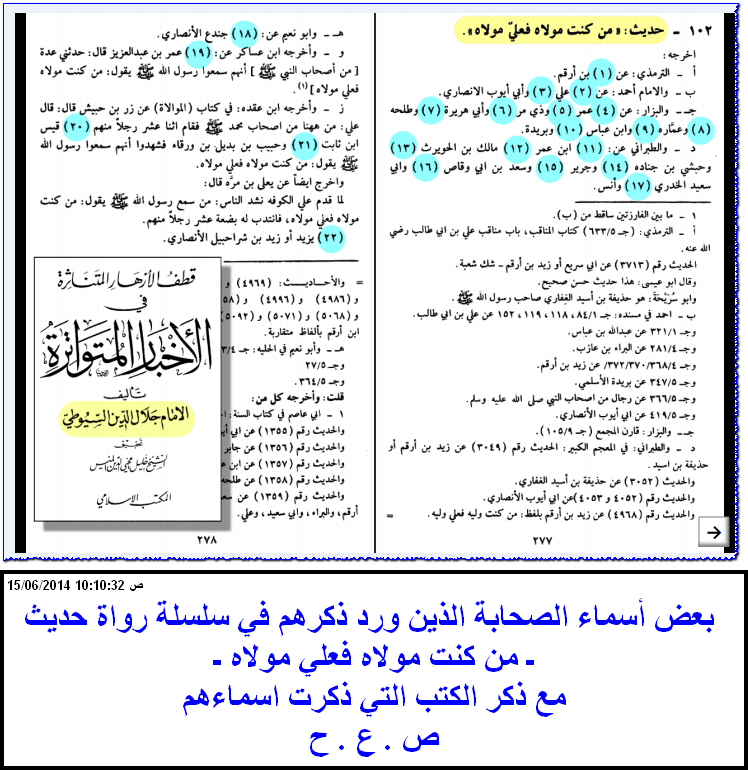 ١٠٢ - حديث: «من كنت مولاه فعليّ مولاه».
اخرجه:
أ - الترمذي: عن (١) بن أرقم.
ب - والامام أحمد: عن (٢) علي (٣) وأبي أيوب الانصاري.
جـ - والبزار: عن (٤) عمر (٥) وذي مر (٦) وأبي هريرة (٧) وطلحه
(٨) وعمّاره (٩) وابن عباس (١٠) وبريدة.
د - والطبراني: عن (١١) ابن عمر (١٢) مالك بن الحويرث (١٣)
وحبشي بن جناده (١٤) وجرير (١٥) وسعد بن ابي وقاص (١٦) وابي
سعيد الخدري (١٧) وأنس.
١ - ما بين الفارزتين ساقط من (ب).
أ - الترمذي: (جـ ٦٣٣/٥) كتاب المناقب، باب مناقب علي بن ابي طالب رضي
الله عنه.
الحديث رقم (٣٧١٣) عن ابي سريع أو زيد بن أرقم - شك شعبة.
وقال ابو عيسى: هذا حديث حسن صحيح.
وابو سُرَيْحَة: هو حذيفة بن أسيد الغِفاري صاحب رسول الله ﷺ.
ب - احمد في مسنده: جـ ٨٤/١، ١١٨، ١١٩، ١٥٢ عن علي بن ابي طالب.
وجـ ٣٢١/١ عن عبدالله بن عباس.
وجـ ٢٨١/٤ عن البراء بن عازب.
وجـ ٣٦٨/٤، ٣٧٠/ ٣٧٢/ عن زيد بن أرقم.
وجـ ٣٤٧/٥ عن بريدة الأسلمي.
وجـ ٣٦٦/٥ عن رجال من اصحاب النبي صلى الله عليه وسلم.
وجـ ٤١٩/٥ عن ابي أيوب الأنصاري.
جـ - والبزار: قارن المجمع (جـ ١٠٥/٩).
د - والطبراني: في المعجم الكبير: الحديث رقم (٣٠٤٩) عن زيد بن أرقم أو
حذيفة بن اسيد.
والحديث (٣٠٥٢) عن حذيفة بن أسيد الغفاري.
والحديث رقم (٤٠٥٢ و ٤٠٥٣) عن ابي أيوب الأنصاري.
والحديث رقم (٤٩٦٨) عن زيد بن أرقم بلفظ: من كنت وليه فعلي وليه.
=
٢٧٧
هـ - وابو نعيم عن: (١٨) جندع الأنصاري.
و - وأخرجه ابن عساكر عن: (١٩) عمر بن عبدالعزيز قال: حدثني عدة
[ من أصحاب النبي ﷺ ] أنهم سمعوا رسول الله ﷺ يقول: من كنت مولاه
فعلي مولاه] (١).
ز - وأخرجه ابن عقده: في كتاب (الموالاة) عن زر بن حبيش قال: قال
علي: من ههنا من اصحاب محمد ﷺ فقام اثنا عشر رجلاً منهم (٢٠) قيس
ابن ثابت (٢١) وحبيب بن بديل بن ورقاء فشهدوا أنهم سمعوا رسول الله
ﷺ يقول: من كنت مولاه فعلي مولاه.
واخرج ايضاً عن يعلى بن مرّه قال:
لما قدم علي الكوفه نشد الناس: من سمع رسول الله ﷺ يقول: من كنت
مولاه فعلي مولاه، فانتدب له بضعة عشر رجلاً منهم.
(٢٢) يزيد أو زيد بن شراحبيل الأنصاري.
= والأحاديث: (٤٩٦٩)
و (٤٩٨٦) و (٤٩٩٦)
و (٥٠٦٨) و (٥٠٧١) و (٥٠٩٢)
ابن أرقم بألفاظ متقاربة.
هـ - وأبو نعيم في الحليه: جـ
وجـ ٢٧/٥
وجـ ٣٦٤/٥
قلت: وأخرجه كل من:
١ - ابي عاصم في كتاب السنة:
والحديث رقم (١٣٥٥) عن
والحديث رقم (١٣٥٦) عن جابر
والحديث رقم (١٣٥٧) عن ابن
والحديث رقم (١٣٥٨) عن طلحه
والحديث رقم (١٣٥٩) عن
أرقم، والبراء، وابي سعيد، وعلي.
٢٧٨
قطف الأزهار المتناثرة
في
الأخبار المتواترة
تأليف
الإمام جلال الدين السيوطي
تحقيق
الشيخ خليل محيي الدين الميس
المكتب الاسلامي
15/06/2014 10:10:32 ص
بعض أسماء الصحابة الذين ورد ذكرهم في سلسلة رواة حديث
ـ من كنت مولاه فعلي مولاه ـ
مع ذكر الكتب التي ذكرت اسماءهم
ص . ع . ح